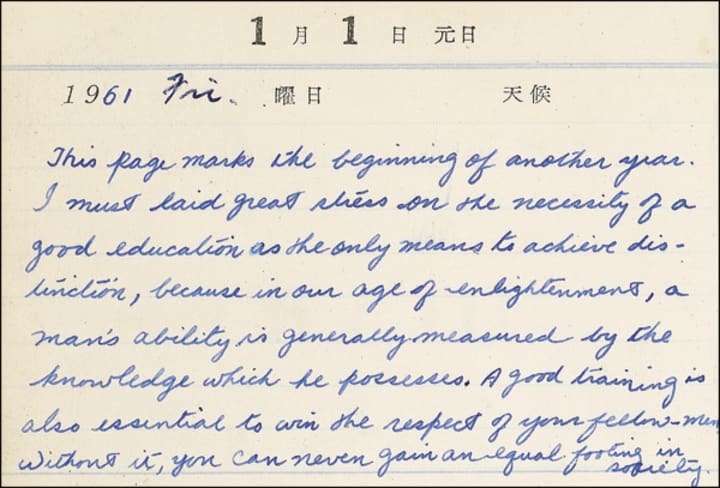 1月1日 元日
1961 Fri. 曜日 天候
This page marks the beginning of another year.
I must laid great stress on the necessity of a
good education as the only means to achieve dis-
tinction, because in our age of enlightenment, a
man's ability is generally measured by the
knowledge which he possesses. A good training is
also essential to win the respect of your fellow-men
without it, you can never gain an equal footing in
society.